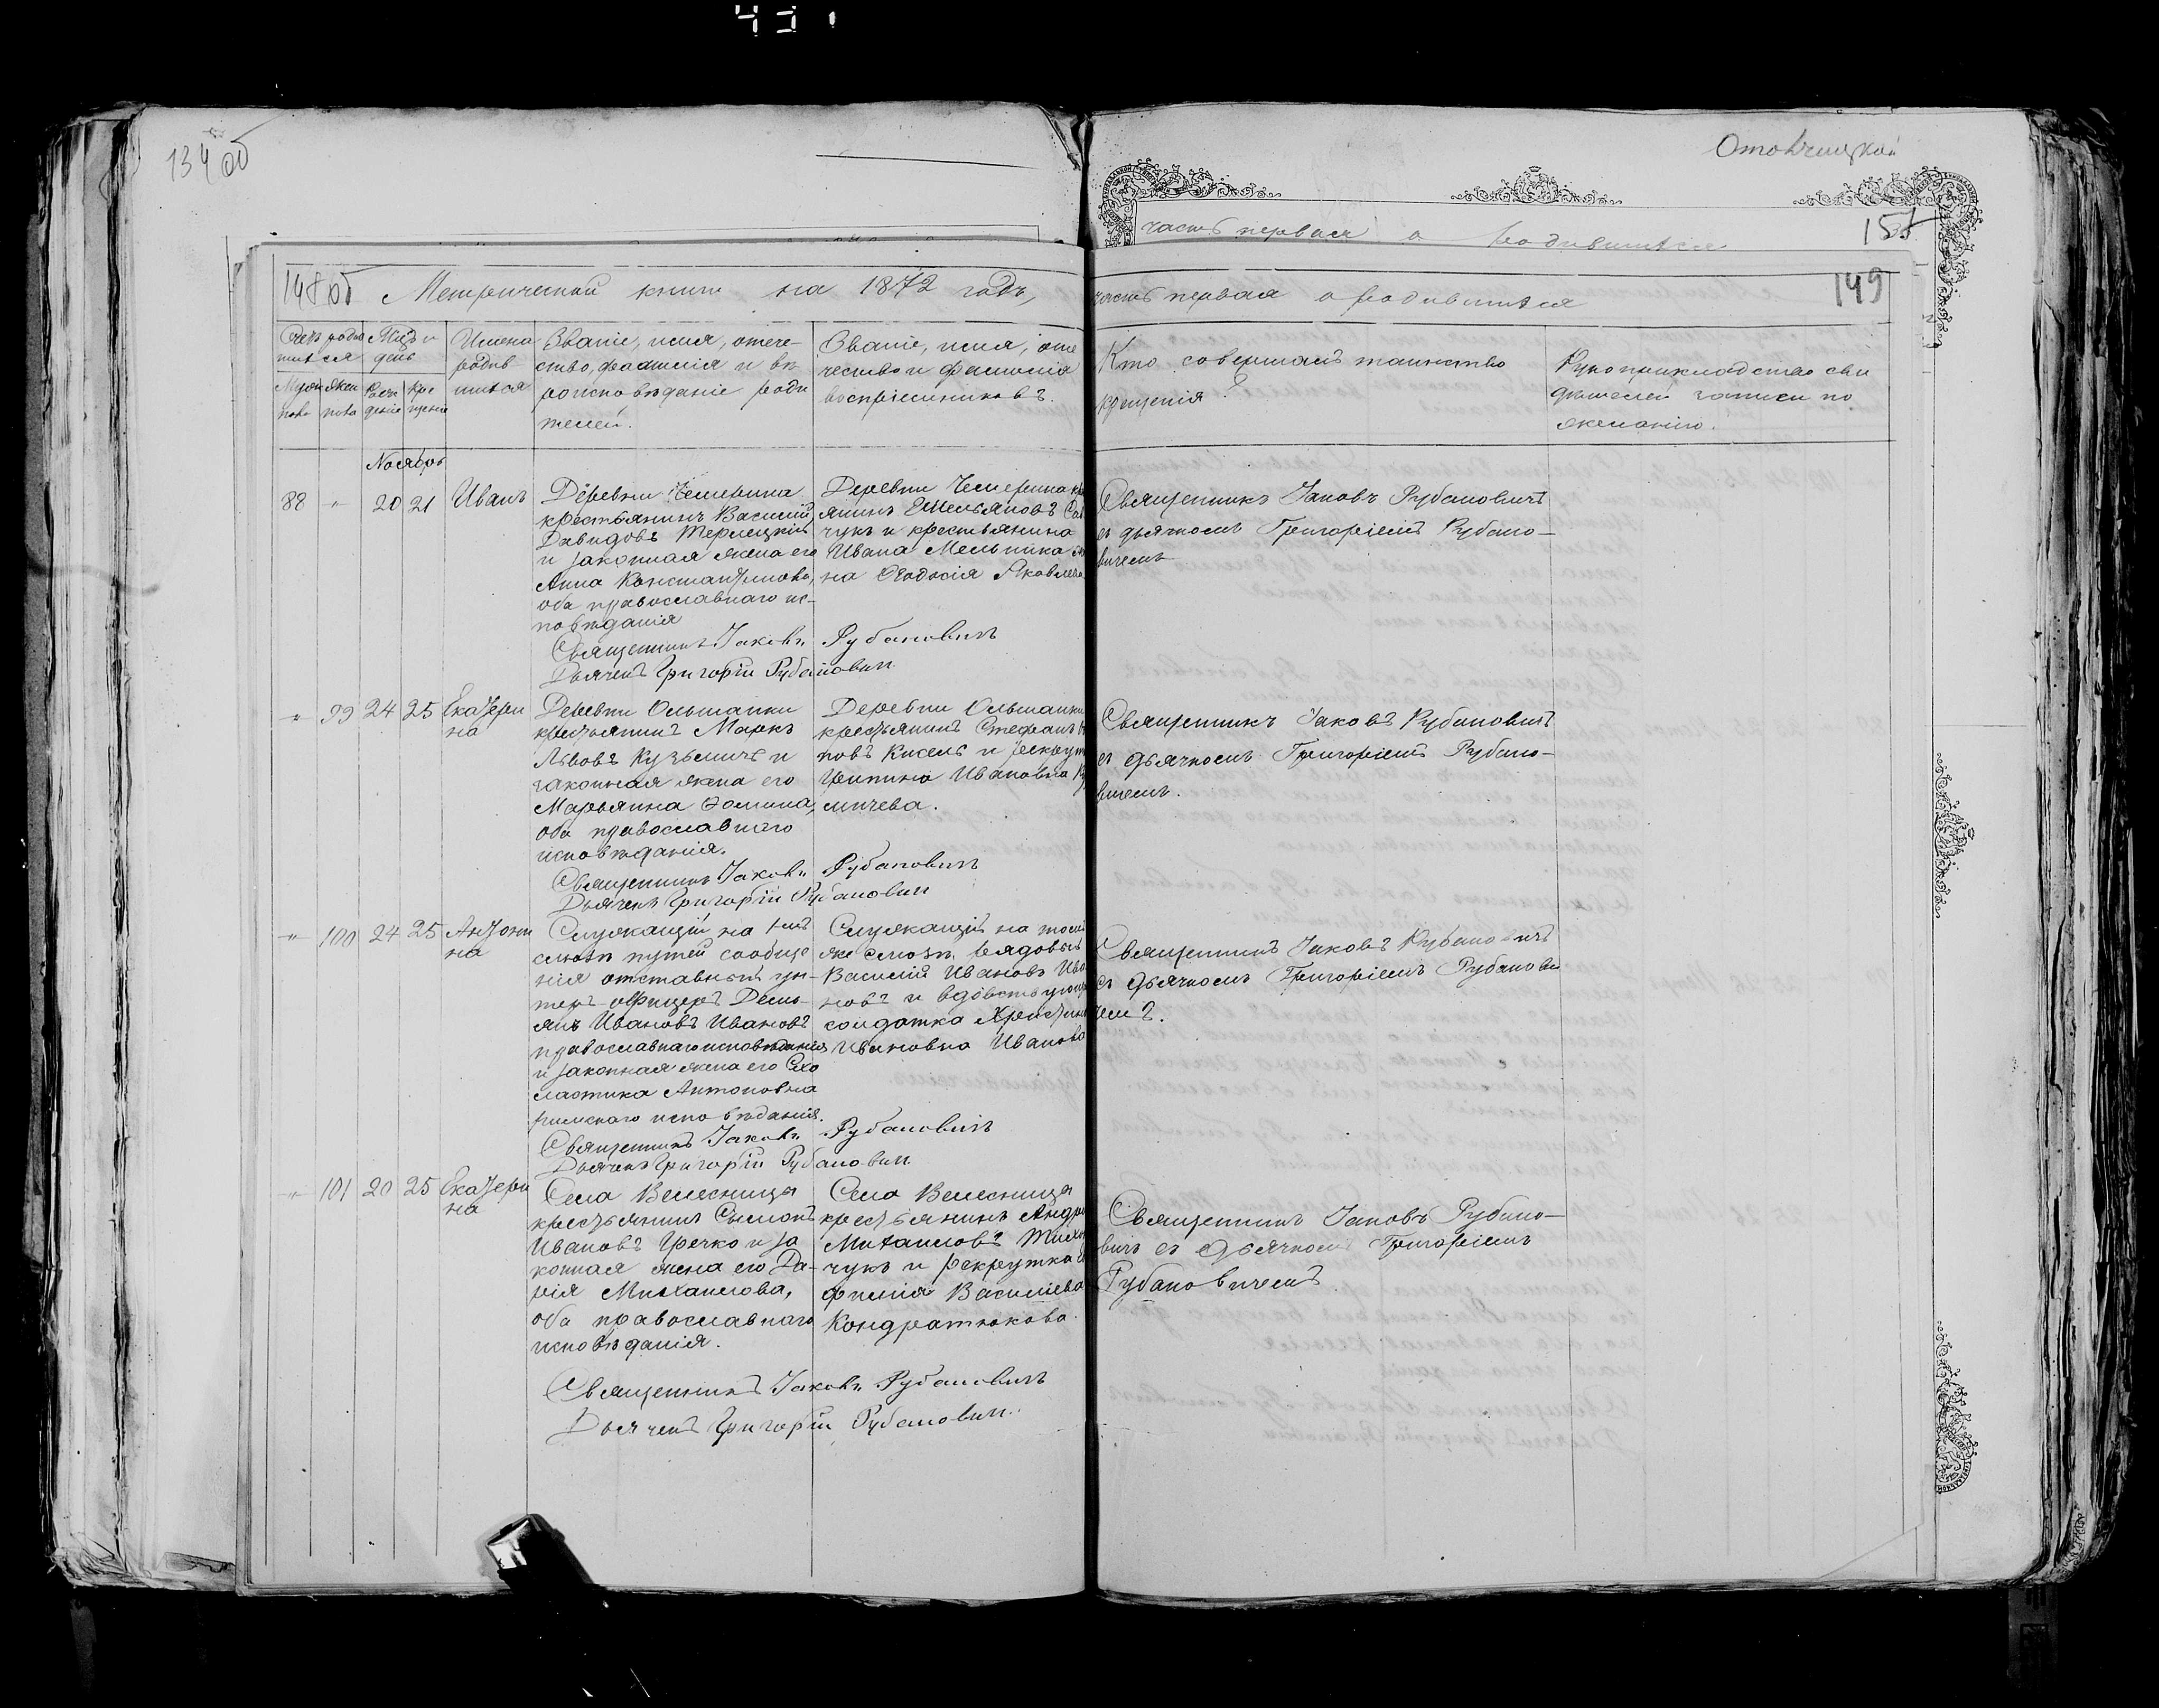 134 об
Отовчицкой
часть первая о родившихся
155
148 об Метрической книги на 1872 годъ,
часть первая о родившихся
149
Счетъ родив
шихся
Мужес
кова
Женс
кова
Мцъ и
день
Рож
деніе
Кре
щеніе
Имена
родив
шихся
Званіе, имя, отече-
ство, фамилія и вѣ
роисповѣданіе роди
телей.
Званіе, имя, оте
чество и фамилія
воспріемниковъ.
Кто совершалъ таинство
крещенія?
Рукоприкладство сви
дѣтелей записи по
желанію.
Ноябрь
88 " 20 21 Иванъ
Деревни Чемерина
крестьянинъ Василій
Давидовъ Терлецкій
и законная жена его
Анна Константинова,
оба православнаго ис-
повѣданія
Деревни Чемерина кр
янинъ Емельяновъ Сав
чукъ и крестьянина
Ивана Мельника же
на Ѳеодосія Яковлева.
Священникъ Іаковъ Рубановичъ
съ дьячкомъ Григоріемъ Рубано-
вичемъ
Священникъ Іаковъ Рубановичъ
Дьячекъ Григорій Рубановичъ
" 99 24 25 Екатери
на
Деревни Ольшанки
крестьянинъ Маркъ
Львовъ Кузьмичъ и
законная жена его
Марьянна Ѳомина,
оба православнаго
исповѣданія.
Деревни Ольшанки
крестьянинъ Стефанъ
повъ Кисель и рекрут
Ивановна
мичева.
Священникъ Іаковъ Рубановичъ
съ дьячкомъ Григоріемъ Рубано-
вичемъ.
Священникъ Іаковъ Рубановичъ
Дьячекъ Григорій Рубановичъ
" 100 24 25 Антони
на
Служащій на
путей сообще
нія отставный ун-
теръ-офицеръ Демь-
янъ Ивановъ Ивановъ
православнаго исповѣданія
и законная жена его Схо
ластика Антоновна
римскаго исповѣданія.
Служащій на томъ
же рядовый
Василій Ивановъ Ива
новъ и вдовствующ
солдатка Христин
Ивановна Иванова
Священникъ Іаковъ Рубановичъ
съ дьячкомъ Григоріемъ Рубанови
чемъ.
Священникъ Іаковъ Рубановичъ
Дьячекъ Григорій Рубановичъ
" 101 20 25 Екатери
на
Села Велесницы
крестьянинъ Сымонъ
Ивановъ Гречко и за
конная жена его Да-
рія Михаилова,
оба православнаго
исповѣданія.
Села Велесница
крестьянинъ Андре
Михаиловъ
чукъ и рекрутка
фимія Василіева
Кондратюкова.
Священникъ Іаковъ Рубано-
вичъ съ дьячкомъ Григоріемъ
Рубановичемъ
Священникъ Іаковъ Рубановичъ
Дьячекъ Григорій Рубановичъ